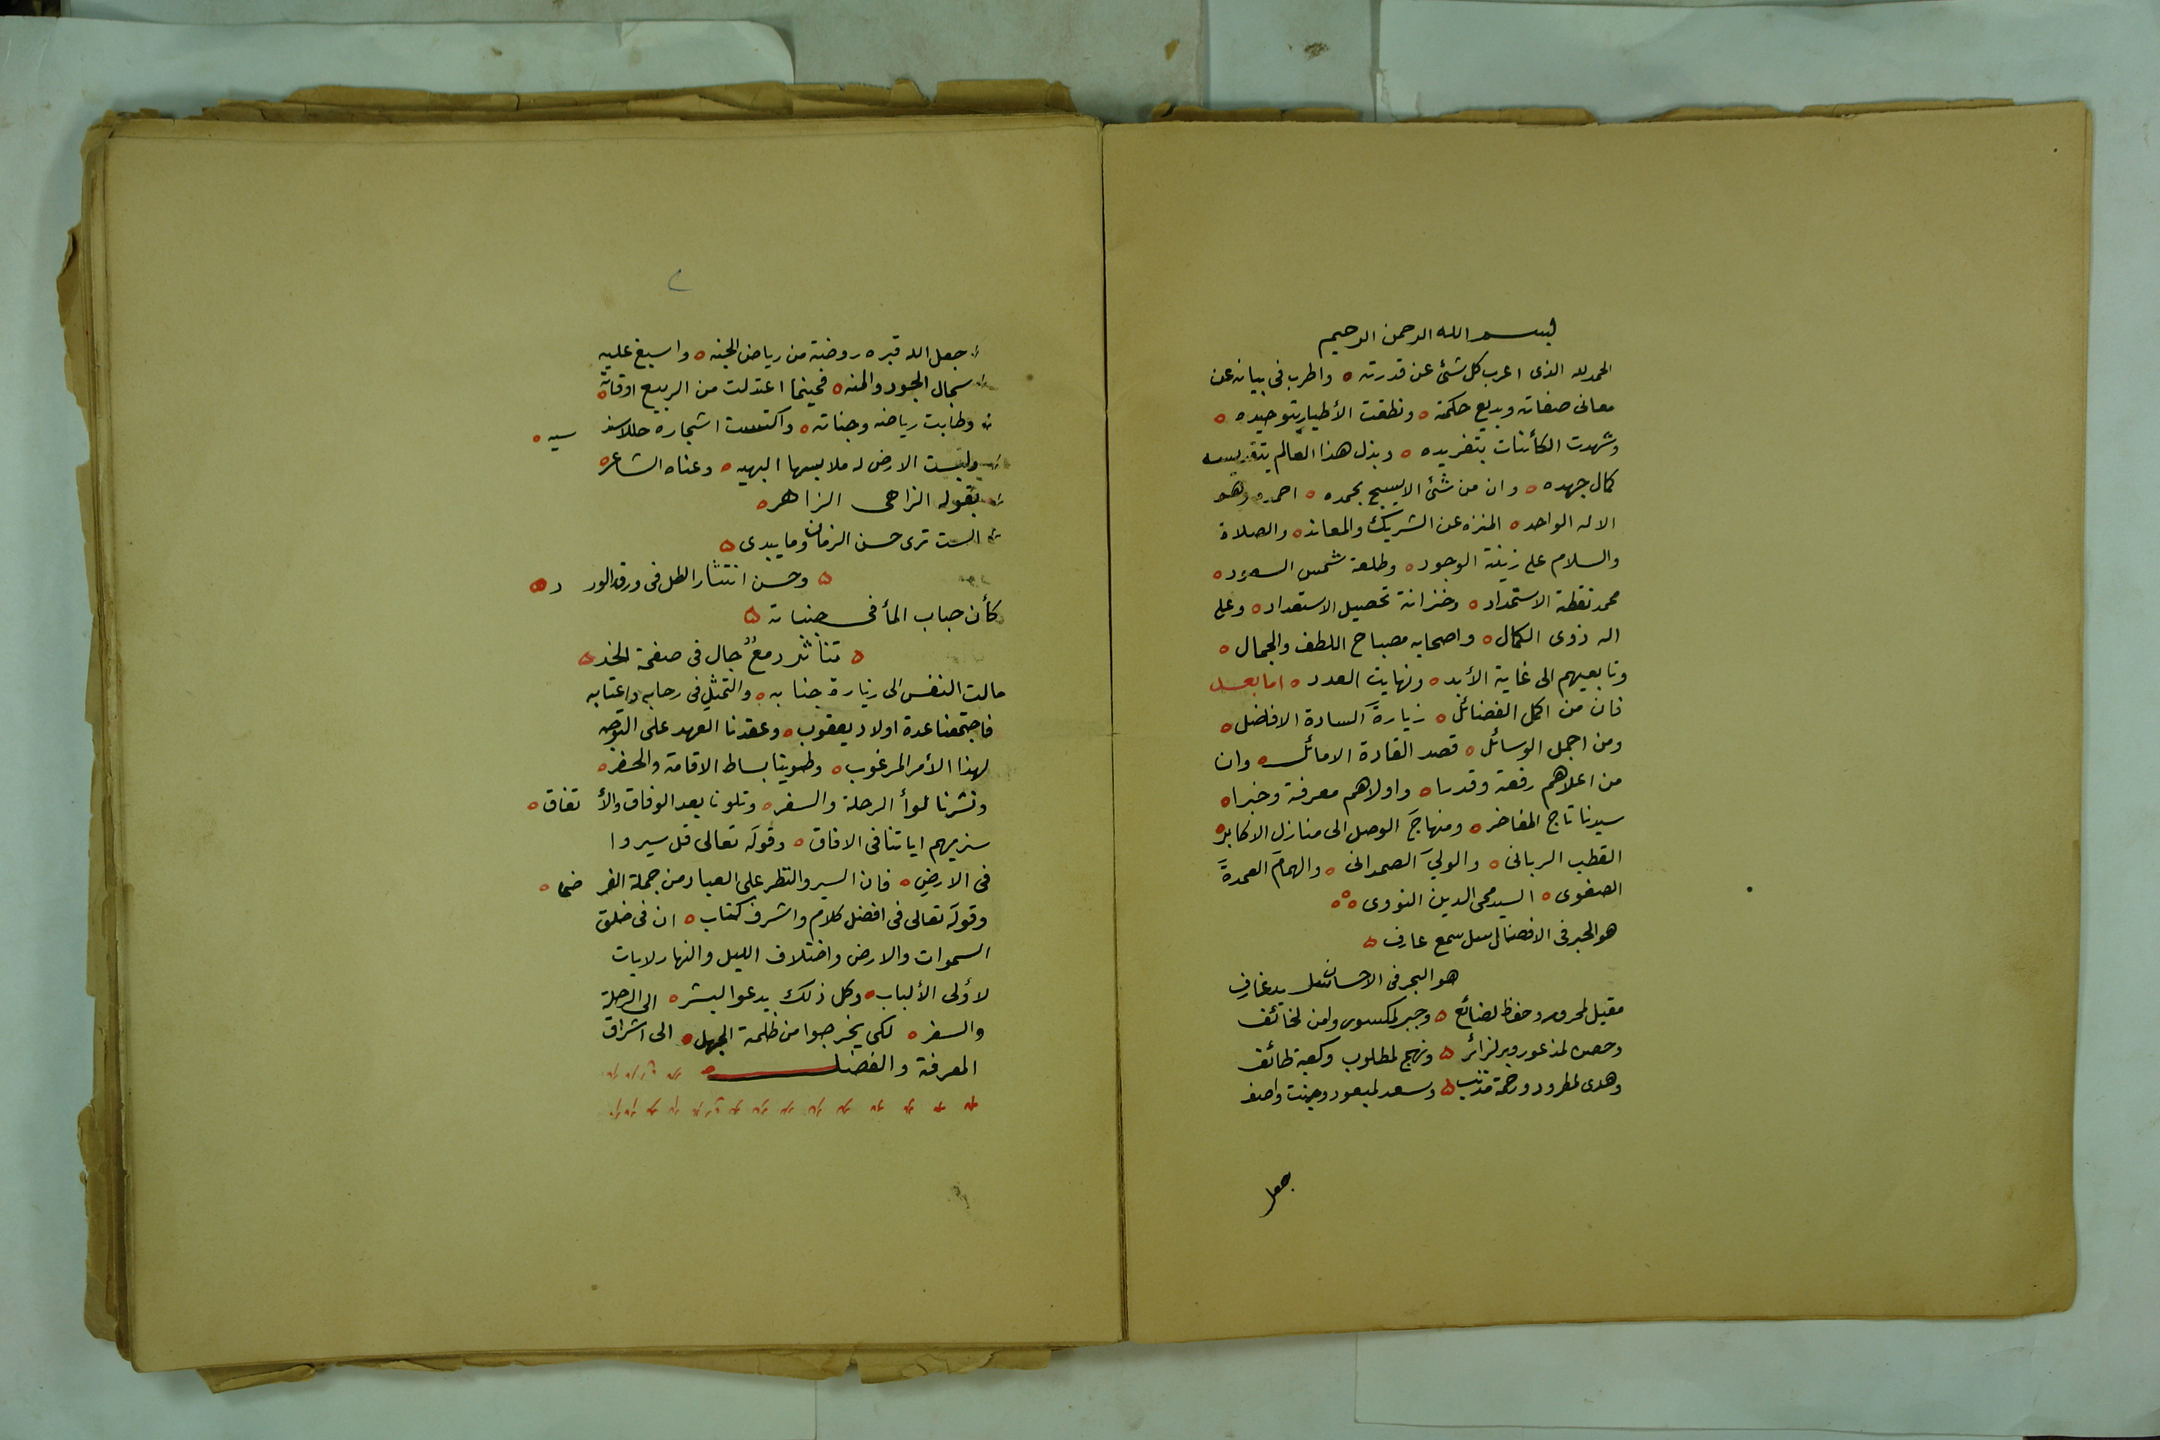 بسم الله الرحمن الرحيم
الحمد لله الذى اعرب كل شئ عن قدرته ٥ واطرب فى بيانه عن
معانى صفاته وبديع حكمته ٥ ونطقت الأطيار بتوحيده ٥
وشهدت الكأئنات بتفريده ٥ وبذل هذا العالم بتقديسه
كمال جهده ٥ وان من شئ الا يسبح بحمده ٥ احمده وهو
الاله الواحد ٥ المنزه عن الشريك والمعاند ٥ والصلاة
والسلام على زينة الوجود ٥ وطلعة شمس السعود ٥
محمد نقطة الاستمداد ٥ وخزانة تحصيل الاستعداد ٥ وعلى
اله ذوى الكمال ٥ واصحابه مصباح اللطف والجمال ٥
وتابعيهم الى غاية الأبد ٥ ونهاية العدد ٥ اما بعد
فان من اكمل الفضائل ٥ زيارة السادة الافاضل ٥
ومن اجمل الوسائل ٥ قصد القادة الاماثل ٥ وان
من اعلاهم رفعة وقدرا ٥ واولاهم معرفة وخبرا ٥
سيدنا تاج المفاخر ٥ ومنهاج الوصل الى منازل الاكابر ٥
القطب الربانى ٥ والولي الصمدانى ٥ والهمام العمدة
الصفوى ٥ السيد محى الدين النووى ٥٥٥
هو الحبر فى الافضال سل سمع عارف ٥
هو البحر فى الاحسان سل يد غارف
مقيل لمحرور وحفظ لضائع ٥ وجبر لمكسور وامن لخائف
وحصن لمذعور وبر لزائر ٥ ونهج لمطلوب وكعبة طائف
وهدى لمطرود ورحمة مذنب ٥ وسعد لمبعود وجنت واصف
جعل
جعل الله قبره روضة من رياض الجنه ٥ واسبغ عليه
سجال الجود والمنه ٥ فحينما اعتدلت من الربيع اوقاته ٥
وطابت رياضه وجناته ٥ واكتست اشجاره حللا سند سيه ٥
ولبست الارض له ملابسها البهيه ٥ وعناه الشاعر ٥
بقوله الزاهى الزاهر ٥
الست ترى حسن الزمان وما يبدى ٥
٥ وحسن انتثار الطل فى ورق الور د ٥
كأن حباب المأ فى جنباته ٥
٥ تناثر دمعٌ جال فى صفحة الخد ٥
مالت النفس الى زيارة جنابه ٥ والتمثل فى رحابه واعتابه
فاجتمعنا عدة اولاد يعقوب ٥ وعقدنا العهد على التوجه
لهذا الأمر المرغوب ٥ وطوينا بساط الاقامة والحضر ٥
ونشرنا لوأ الرحلة والسفر ٥ وتلونا بعد الوفاق والأ تفاق ٥
سنريهم اياتنا فى الافاق ٥ وقوله تعالى قل سيروا
فى الارض ٥ فان السير والنظر على العباد من جملة الفر ض ٥
وقوله تعالى فى افضل كلام واشرف كتاب ٥ ان فى خلق
السموات والارض واختلاف الليل والنهار لايات
لأولى الألباب ٥ وكل ذلك يدعو البشر ٥ الى الرحلة
والسفر ٥ لكى يخرجوا من ظلمة الجهل ٥ الى اشراق
المعرفة والفضل ٥